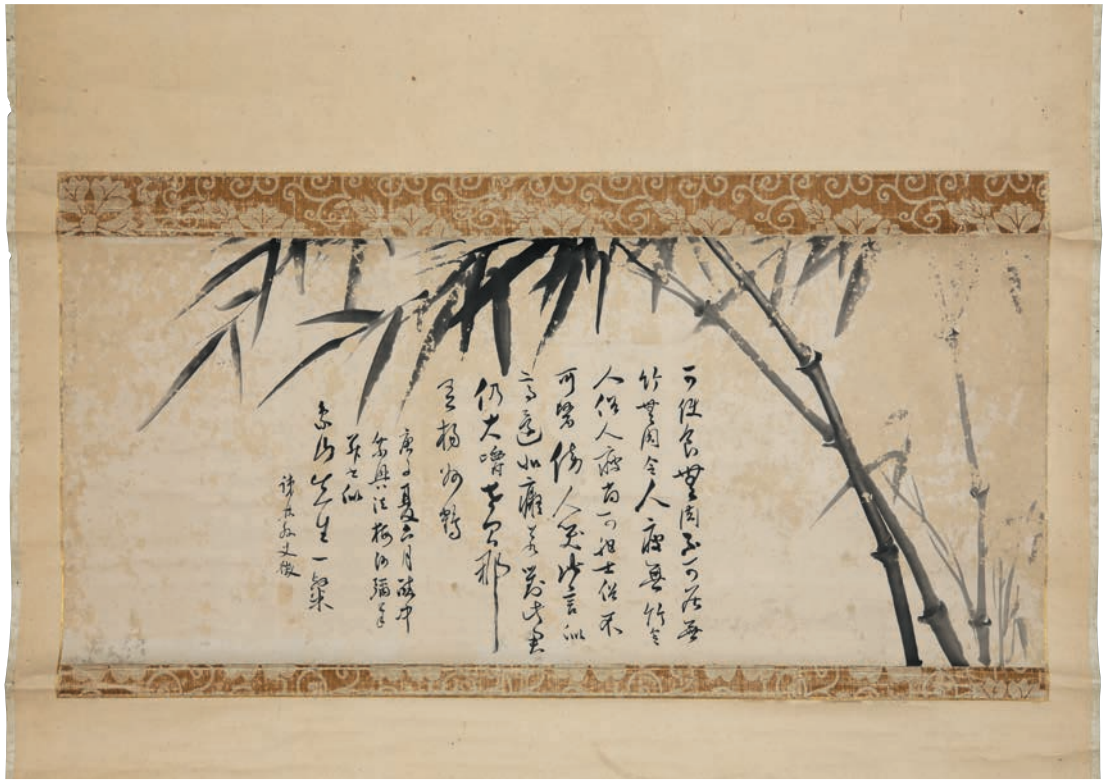 可使食無肉不可居無
竹無肉令人瘦無竹令
人俗人瘦尚可肥士俗不
可醫傍人笑此言似
高還似癡若對此君
仍大嚼世間那
有揚州鶴
庚子夏六月醉中
先生一粲